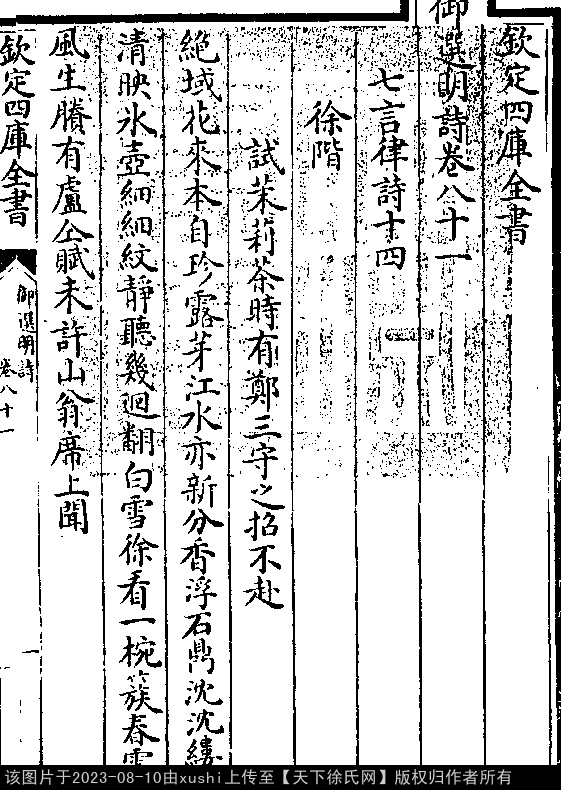 欽定四庫全書
御選明詩卷八十一
七言律詩十四
徐階
試茉莉茶時有鄭三守之招不赴
絶域花來本自珍露芽江水亦新分香浮石鼎沈沈縷
清映冰壺細細紋靜聽幾迴翻白雪徐看一椀簇春雲
風生賸有盧仝賦未許山翁席上聞
欽定四庫全書
御選明詩
卷八十一
一
该图片于2023-08-10由xushi上传至【天下徐氏网】版权归作者所有